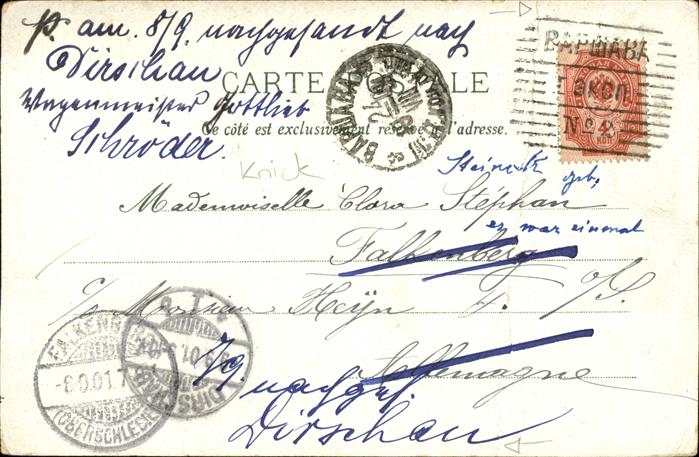 p. am. 8/9. nachgesandt nach
Dirschau
Wagenmeister Gottlieb
Schröder.
CARTE POSTALE
Ce côté est exclusivement réservé à l'adresse.
ВАРШАВА
ЭКСП.
No 2
ВАРШАВА
Knick
geb.
Mademoiselle Clara Stéphan
es war einmal
Falkenberg
c/o Monsieur Heyn O/S.
Allemagne
nachges.
Dirschau
FALKENBERG
(OBERSCHLESIEN)
DIRSCHAU